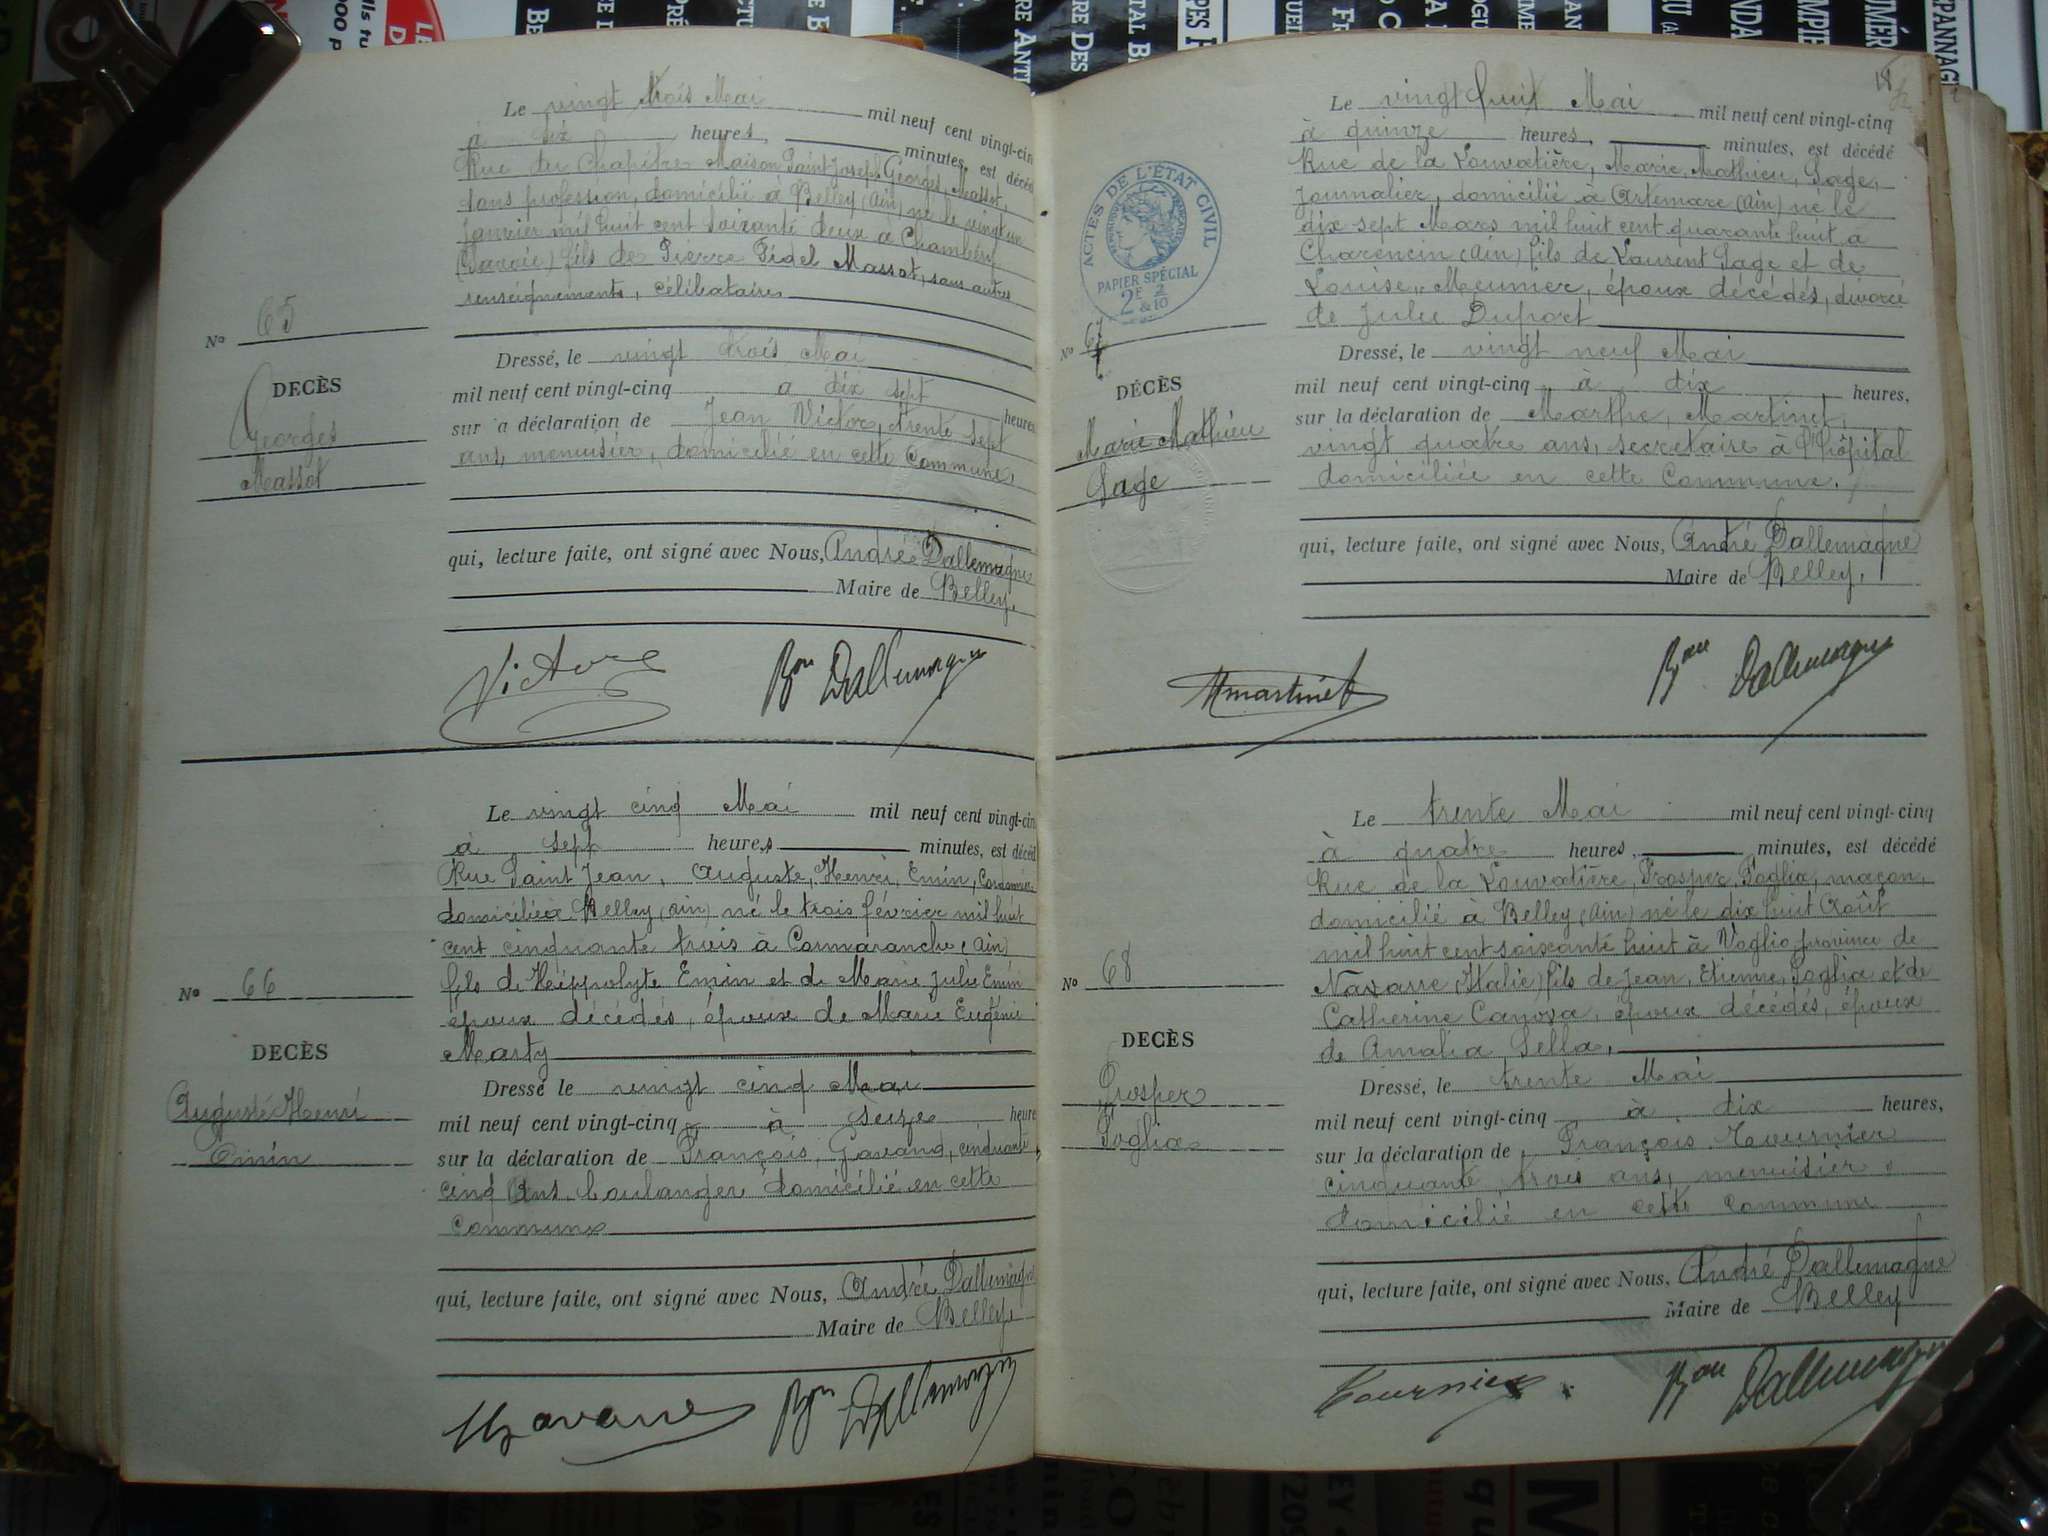 Le vingt trois Mai mil neuf cent vingt-cin
à dix heures, minutes, est décéd
Rue du Chapitre Maison Saint Joseph Georges, Massot,
sans profession, domicilié à Belley (Ain) né le vingt un
janvier mil huit cent soixante deux à Chambéry
(Savoie) fils de Pierre Fidel Massot, sans autres
renseignements, célibataire
No 65
DECÈS
Georges
Massot
Dressé, le vingt trois Mai
mil neuf cent vingt-cinq à dix sept heures
sur a déclaration de Jean Victor, trente sept
ans, menuisier, domicilié en cette Commune,
qui, lecture faite, ont signé avec Nous, André Dallemagne
Maire de Belley,
Victore Bon Dallemagne
Le vingt cinq Mai mil neuf cent vingt-cin
à sept heures minutes, est décéd
Rue Saint Jean, Auguste, Henri, Emin,
domicilié à Belley (Ain) né le trois février mil huit
cent cinquante trois à Cormaranche (Ain)
fils de Hippolyte Emin et de Marie Julie Emin
époux décédés, époux de Marie Eugénie
Marty
No 66
DECÈS
Auguste Henri
Emin
Dressé le vingt cinq Mai
mil neuf cent vingt-cinq à seize heure
sur la déclaration de François, Gavand, cinquante
cinq ans boulanger domicilié en cette
commune
qui, lecture faite, ont signé avec Nous, André Dallemagne
Maire de Belley,
Bon Dallemagne
18
Le vingt huit Mai mil neuf cent vingt-cinq
à quinze heures, minutes, est décédé
Rue de la Louvatière, Marie, Mathieu, Sage,
Journalier, domicilié à Artemare (Ain) né le
dix sept Mars mil huit cent quarante huit à
Charencin (Ain) fils de Laurent Sage et de
Louise, Meunier, époux décédés, divorcé
de Julie Duport
ACTES DE L'ÉTAT CIVIL
PAPIER SPÉCIAL
2F 2
&10
No 67
DÉCÈS
Marie Mathieu
Sage
Dressé, le vingt neuf Mai
mil neuf cent vingt-cinq à dix heures,
sur la déclaration de Marthe, Martinet,
vingt quatre ans, secrétaire à l'hôpital
domiciliée en cette Commune.
qui, lecture faite, ont signé avec Nous, André Dallemagne
Maire de Belley,
Mmartinet Bon Dallemagne
Le trente Mai mil neuf cent vingt-cinq
à quatre heures, minutes, est décédé
Rue de la Louvatière, Prosper, Poglia, maçon,
domicilié à Belley (Ain) né le dix huit Août
mil huit cent soixante huit à Voglio province de
Navarre (Italie) fils de Jean, Etienne, Poglia et de
Catherine Canova, époux décédés, époux
de Amalia Sella,
No 68
DECÈS
Prosper
Poglia
Dressé, le trente Mai
mil neuf cent vingt-cinq à dix heures,
sur la déclaration de François Tournier
cinquante trois ans, menuisier
domicilié en cette commune
qui, lecture faite, ont signé avec Nous, André Dallemagne
Maire de Belley
Tournier Bon Dallemagne